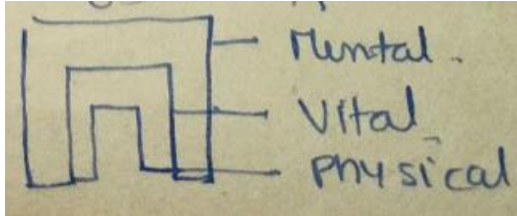 Mental.
Vital
Physical